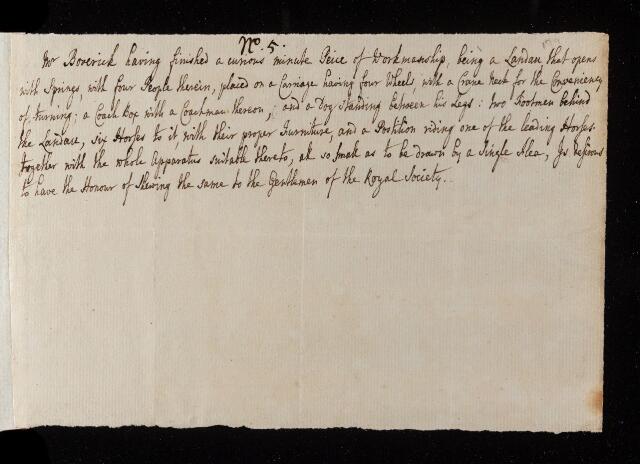 No. 5.
Mr Boverick having finished a curious minute Peice of Workmanship, being a Landau that opens
with Springs, with four People therein, placed on a Carriage having four Wheels, with a Crane Neck for the Conveniency
of turning; a Coach Box with a Coachman thereon; and a Dog Standing between his Legs: two Footmen behind
the Landau, six Horses to it, with their proper Furniture, and a Postilion riding one of the leading Horses.
together with the whole Apparatus suitable thereto, all so small as to be drawn by a Single Flea, Is desirous
to have the Honour of Shewing the same to the Gentlemen of the Royal Society.